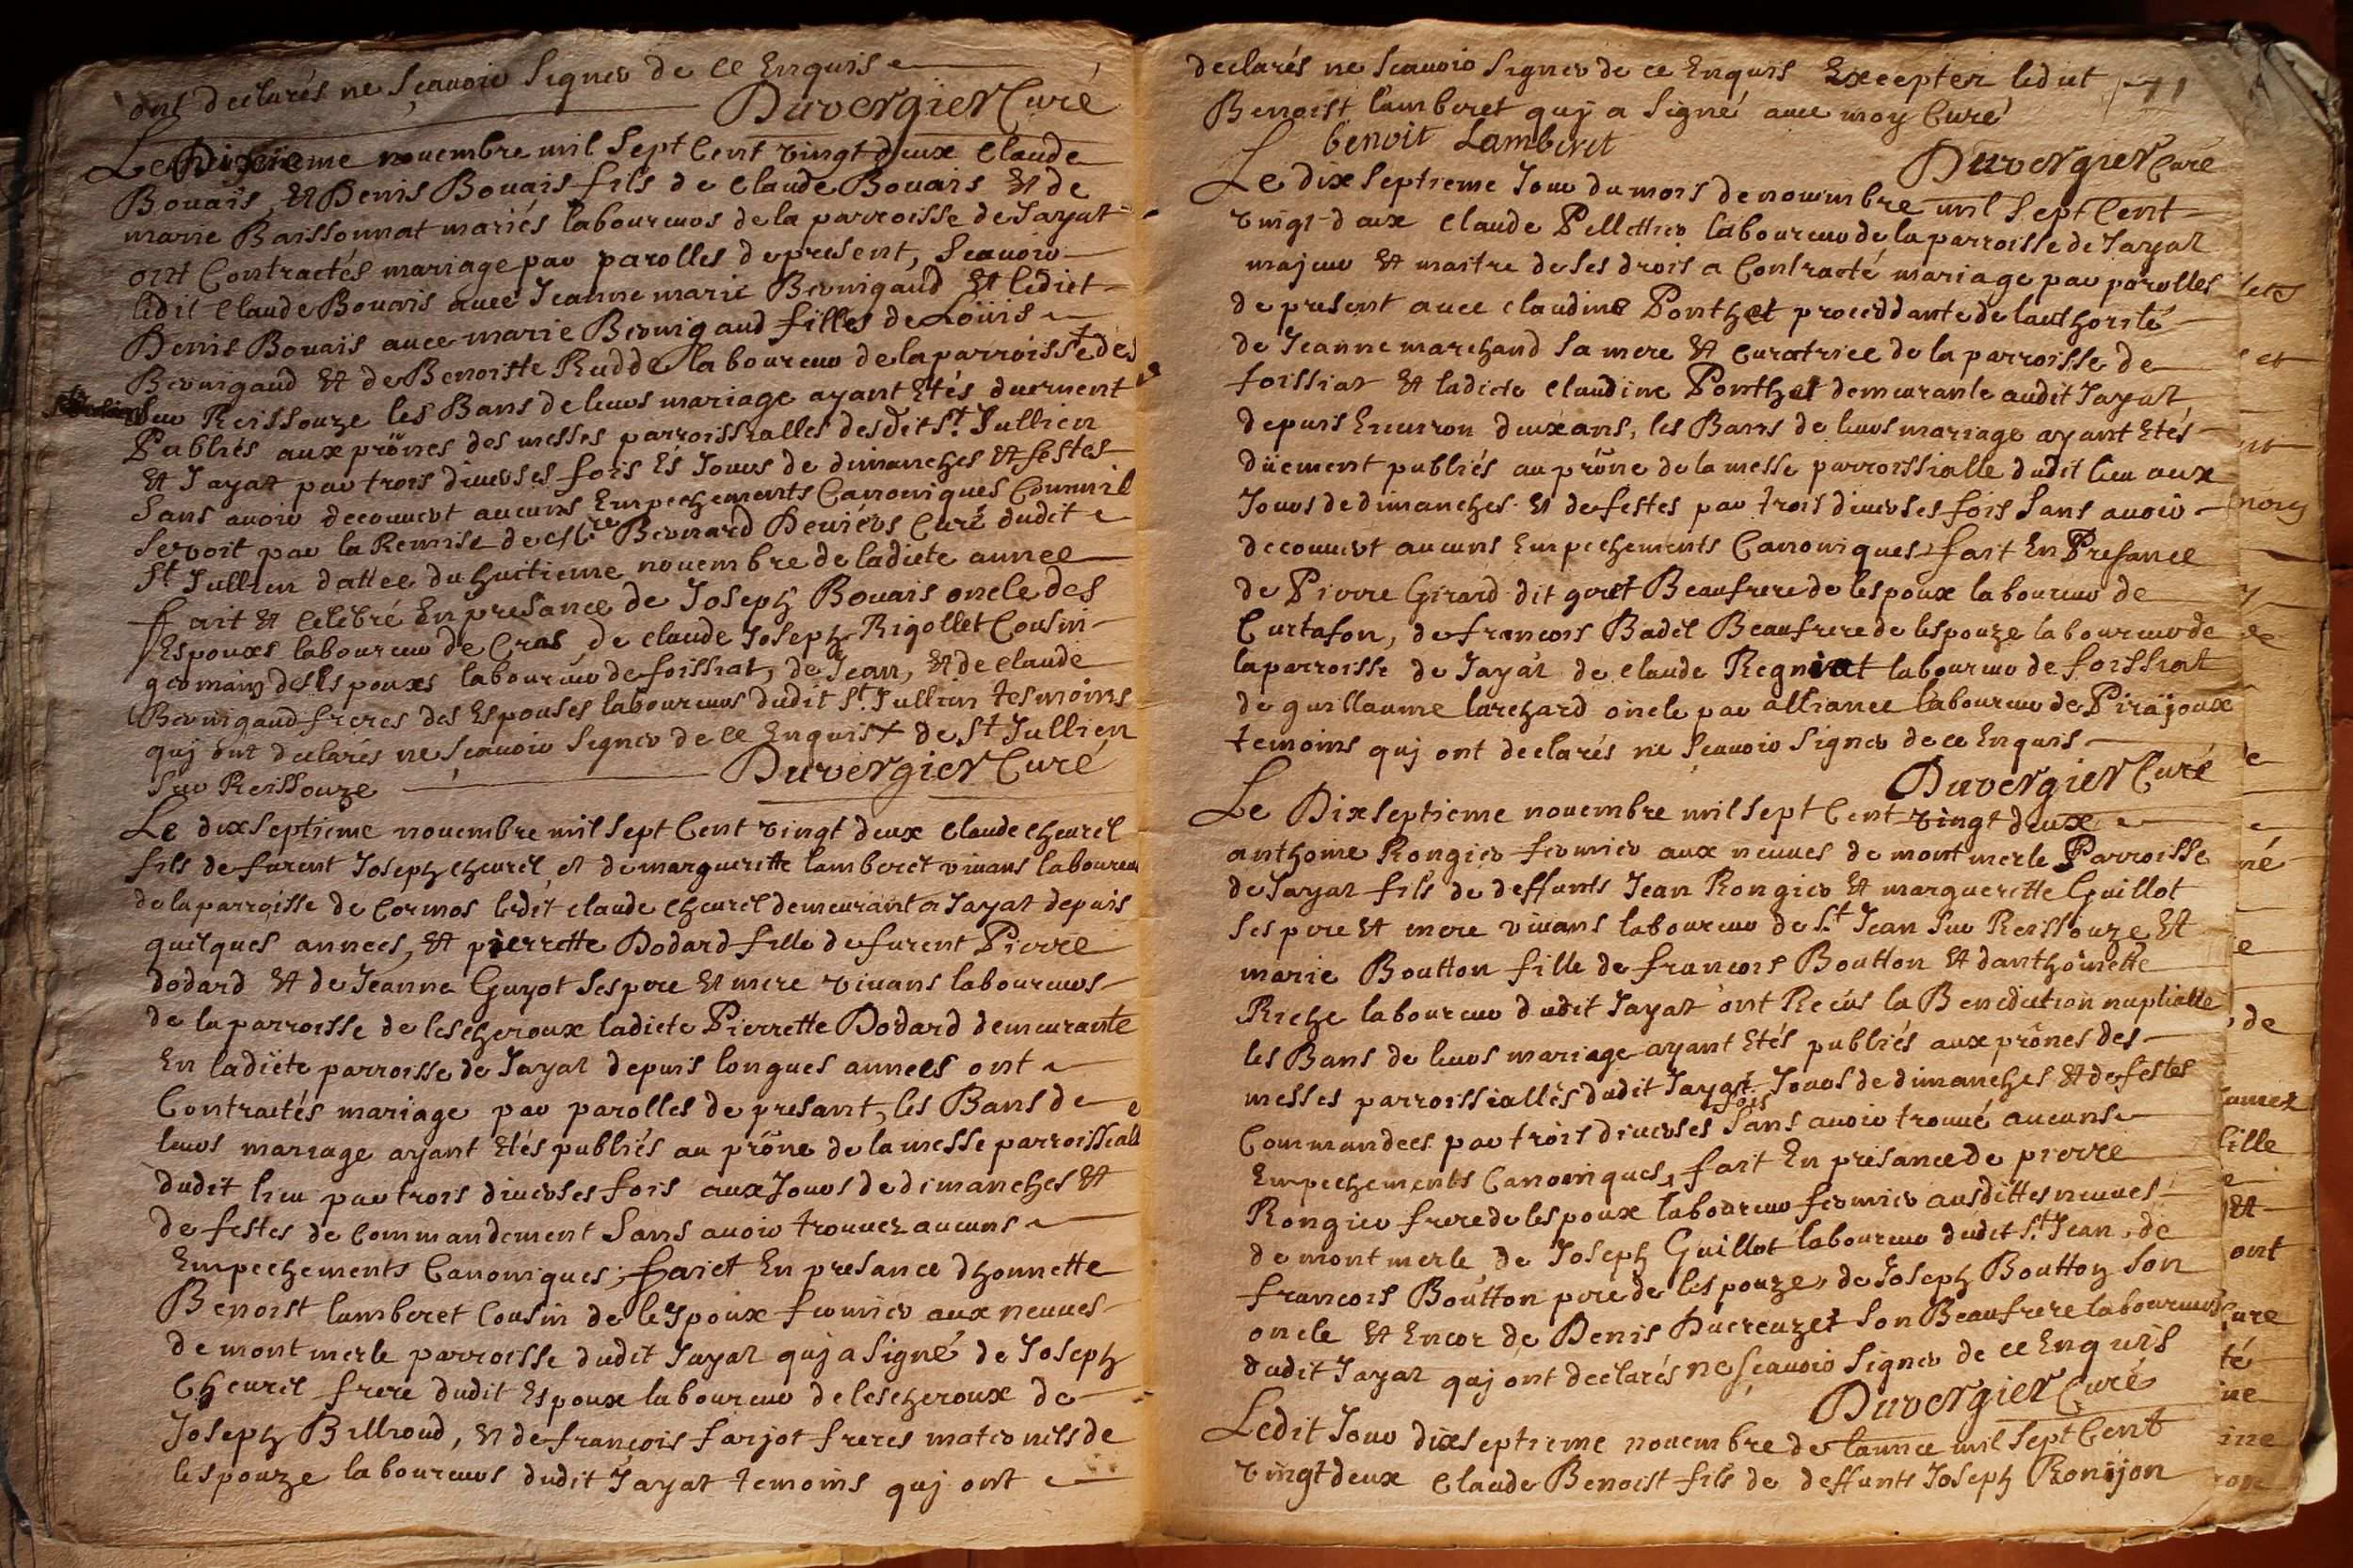 ont declarés ne sçauoir signer de ce Enquis
Duvergier Curé
Le Dixieme nouembre mil sept Cent vingt deux Claude
Bouais, Et Denis Bouais fils de Claude Bouais Et de
marie Baissonnat mariés laboureurs de la parroisse de Jayat
ont Contractés mariage par parolles de present, sçauoir
ledit Claude Bouais auec Jeanne marie Brouigaud Et ledict
Denis Bouais auec marie Brouigaud filles de Loüis
Brouigaud Et de Benoitte Rudde laboureur de la parroisse de
sur Reissouze les Bans de leurs mariage ayant Etés duement
Publiés aux prônes des messes parroissialles desdits St Jullien
Et Jayat par trois diuerses fois Es Jours de dimanches Et festes
Sans auoir decouuert aucuns Empechements Canoniques Comme il
seroit par la Remise de Bernard Deuiers Curé dudit
St Jullien dattee du huitieme nouembre de ladicte annee
fait Et Celebré En presance de Joseph Bouais oncle des
Espouxs laboureur de Cras, de Claude Joseph Rigollet Cousin
germain desEspouxs laboureur de foissiat, de Jean, Et de Claude
Brouigaud freres des Espouses laboureurs dudit St Jullien tesmoins
quj ont declarés ne sçauoir signer de ce Enquis + de St Jullien
sur Reissouze
Duvergier Curé
Le dix septieme nouembre mil sept Cent vingt deux Claude Cheurel
fils de furent Joseph Cheurel, et de margueritte lamberet viuans laboureur
de la parroisse de Cormos ledit Claude Cheurel demeurant a Jayat depuis
quelques annees, Et pierrette Dodard fille de furent Pierre
dodard Et de Jeanne Guyot ses pere Et mere viuans laboureurs
de la parroisse de lescheroux ladicte Pierrette Dodard demeurante
En ladicte parroisse de Jayat depuis longues annees ont
Contractés mariage par parolles de presant, les Bans de
leurs mariage ayant Etés publiés au prône de la messe parroissialle
dudit lieu par trois diuerses fois aux Jours de dimanches Et
de festes de Commandement Sans auoir trouuez aucuns
Empechements Canoniques; faict En presance dhonnette
Benoist lamberet Cousin de lespoux fermier aux neuues
de montmerle parroisse dudit Jayat quj a signé de Joseph
Cheurel frere dudit Espoux laboureur de lescheroux de
Joseph Billioud, et de françois farjot freres maternels de
lespouze laboureurs dudit Jayat temoins quj ont
declarés ne scauoir signer de ce Enquis Excepter ledict
Benoist lamberet quj a signé auec moy Curé
71
benoit Lamberet
Duvergier Curé
Le dix septieme Jour du mois de nouembre mil sept Cent
vingt deux Claude Pelletier laboureur de la parroisse de Jayat
majeur Et maitre de ses drois a Contracté mariage par parolles
de present auec Claudine Ponthet proceddante de lauthorité
de Jeanne marchand sa mere Et Curatrice de la parroisse de
foissiat Et ladicte Claudine Ponthet demeurante audit Jayat
depuis Enuiron deux ans, les Bans de leurs mariage ayant Etés
düement publiés au prône de la messe parroissialle dudit lieu aux
Jours de dimanches Et de festes par trois diuerses fois Sans auoir
decouuert aucuns Empechements Canoniques, fait En Presance
de Pierre Girard dit goret Beaufrere de lespoux laboureur de
Curtafon, de francois Badel Beaufrere de lespouze laboureur de
la parroisse de Jayat de Claude Regniat laboureur de foissiat
de guillaume larchard oncle par alliance laboureur de Pirajoux
temoins quj ont declarés ne sçauoir signer de ce Enquis
Duvergier Curé
Le Dix septieme nouembre mil sept Cent vingt deux
anthoine Rongier fermier aux neuues de montmerle Parroisse
de Jayat fils de deffunts Jean Rongier Et marguerette Guillot
ses pere Et mere viuans laboureur de St Jean sur Reissouze Et
marie Boutton fille de francois Boutton Et danthoinette
Riche laboureur dudit Jayat ont Recus la Benediction nuptialle
les Bans de leurs mariage ayant Etés publiés aux prônes des
messes parroissialles dudit Jayat Jours de dimanches Et de festes
Commandees par trois diuerses fois Sans auoir trouué aucuns
Empechements Canoniques, fait En presance de pierre
Rongier frere de lespoux laboureur fermier ausdittes neuues
de montmerle de Joseph Guillot laboureur dudit St Jean, de
francois Boutton pere de lespouze, de Joseph Boutton son
oncle Et Encor de Denis Ducreuzet son Beaufrere laboureurs
dudit Jayat quj ont declarés ne sçauoir signer de ce Enquis
Duvergier Curé
Ledit Jour dix septieme nouembre de lannee mil sept Cent
vingt deux Claude Benoist fils de deffunts Joseph Ronijon